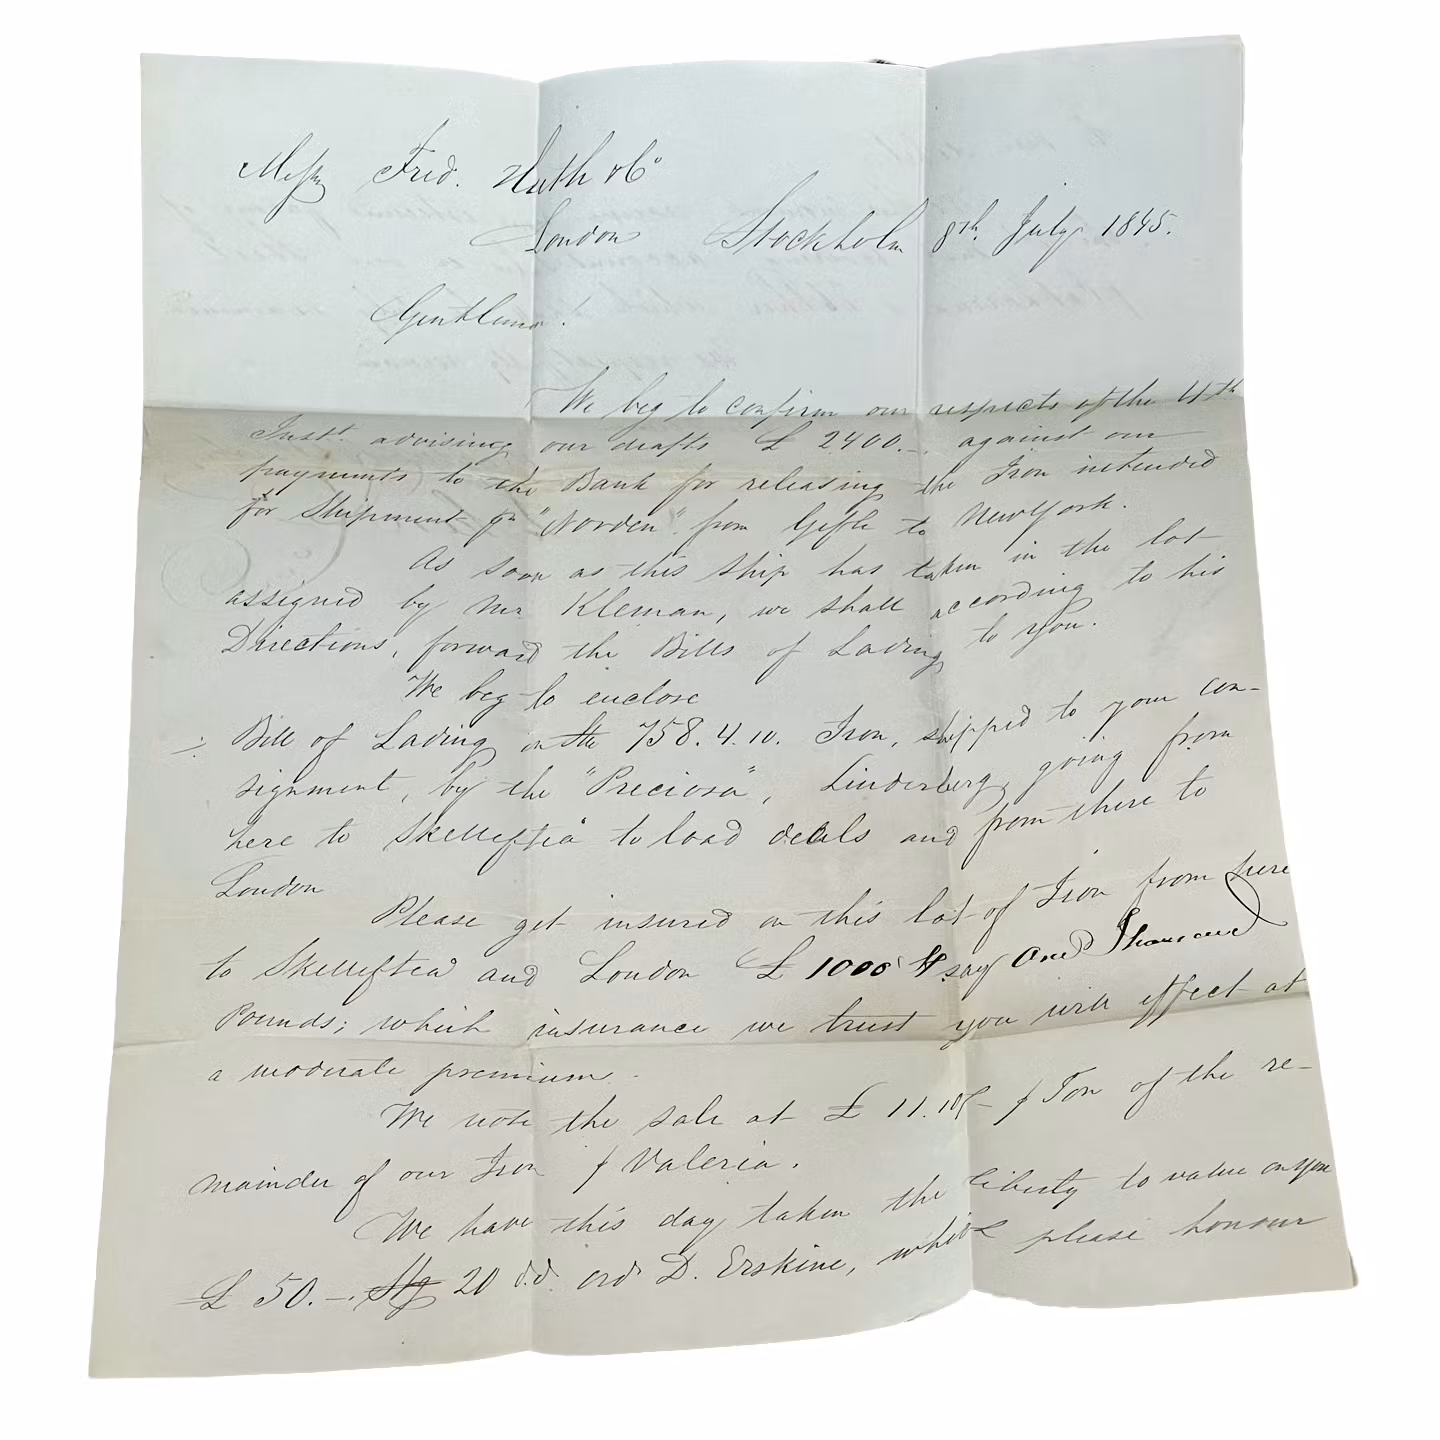 Messrs Fred. Huth & Co
London Stockholm 8th July 1845.
Gentlemen!
We beg to confirm our respects of the 4th
Inst. advising our drafts £ 2400.–. against our
payments to the Bank for releasing the Iron intended
for Shipment pr "Norden" from Gefle to NewYork.
As soon as this ship has taken in the lot
assigned by Mr. Kleman, we shall according to his
Directions, forward the Bills of Lading to you.
We beg to enclose
Bill of Lading on 758.4.10. Iron, shipped to your con-
signment, by the "Preciosa", Linderberg, going from
here to Skellefteå to load deals and from there to
London
Please get insured on this lot of Iron from here
to Skellefteå and London £ 1000 say One Thousand
Pounds; which insurance we trust you will effect at
a moderate premium.
We note the sale at £ 11.10/– p Ton of the re-
mainder of our Iron p Valeria.
We have this day taken the liberty to value on you
£ 50.–. Stg 20 d.d. ord D. Erskine, which please honour